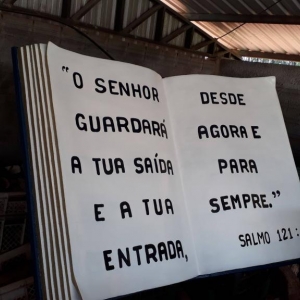 "O SENHOR
GUARDARÁ
A TUA SAÍDA
E A TUA
ENTRADA,
DESDE
AGORA E
PARA
SEMPRE."
SALMO 121: